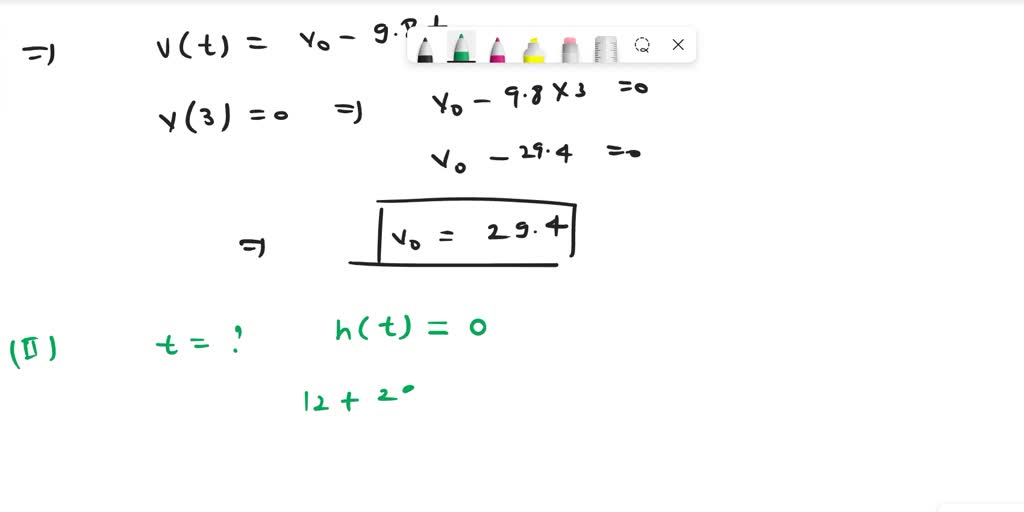 ⇒ v(t) = v₀ - 9.8 t
v(3) = 0 ⇒ v₀ - 9.8 × 3 = 0
v₀ - 29.4 = 0
⇒ v₀ = 29.4
(II) t = ? h(t) = 0
12 + 2